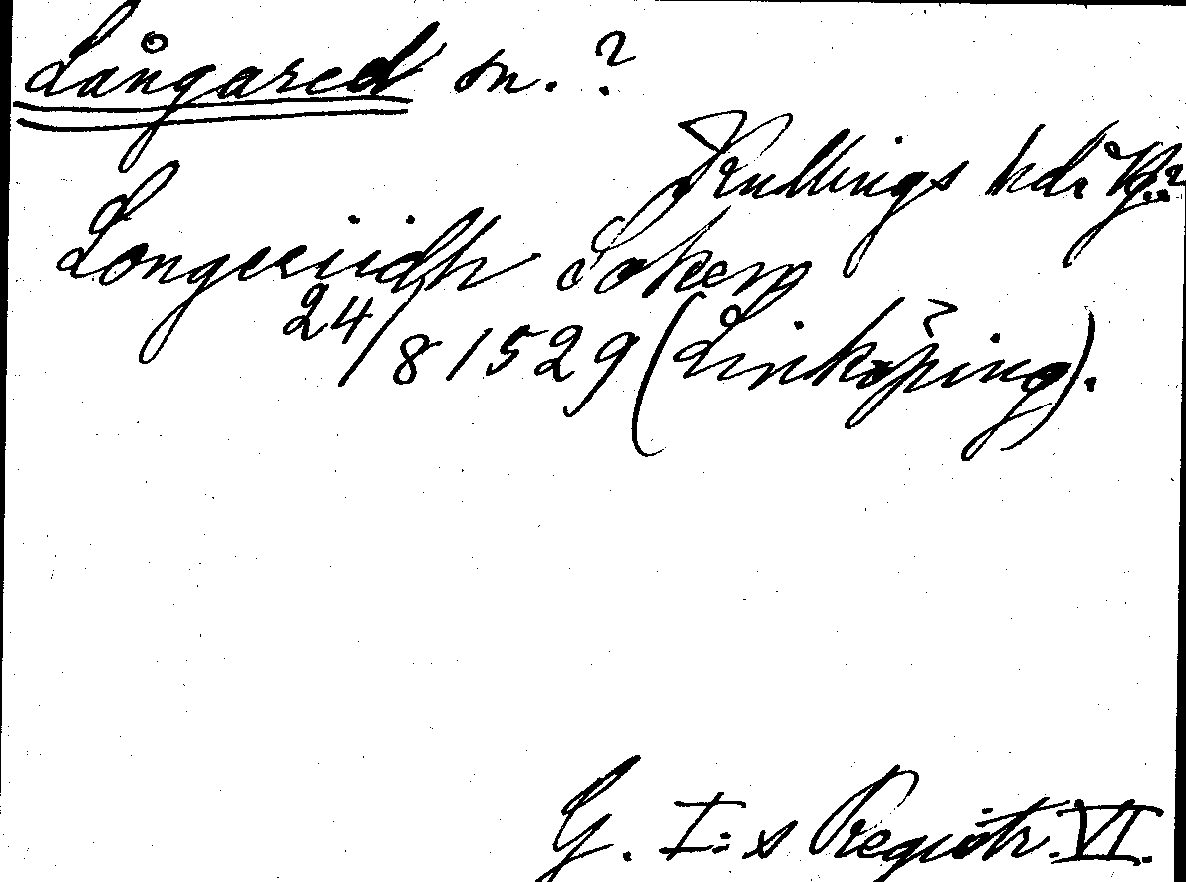 Långared sn.?
Kullings hd. Vg.?
Longeriidh Soken
24/8 1529 (Linköping).
G. I:s Registr. VI.